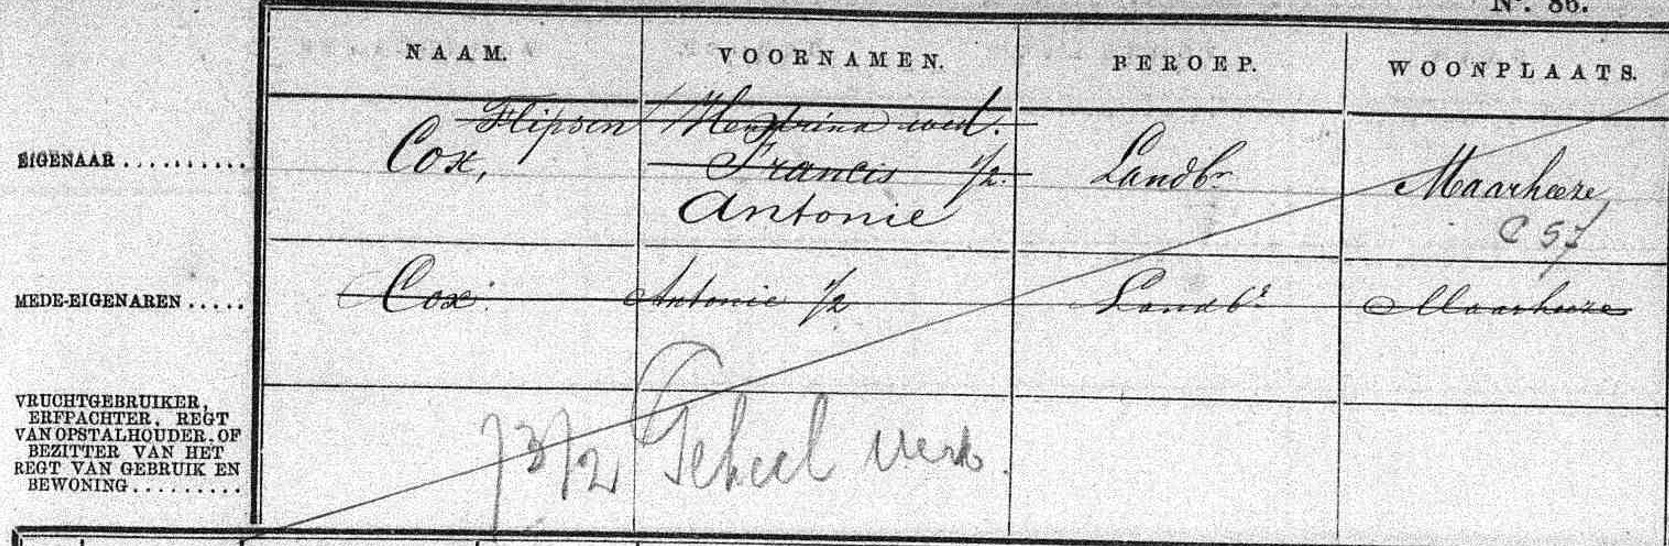 N°. 86.
NAAM. VOORNAMEN. BEROEP. WOONPLAATS.
Flipsen Hendrina wed.
EIGENAAR .......... Cox, Francis 1/2. Landbr Maarheeze,
Antonie
C 57
MEDE-EIGENAREN ..... Cox. Antonie 1/2 Landbr Maarheeze
VRUCHTGEBRUIKER,
ERFPACHTER, REGT
VAN OPSTALHOUDER, OF
BEZITTER VAN HET
REGT VAN GEBRUIK EN
BEWONING .........
Geheel verk.